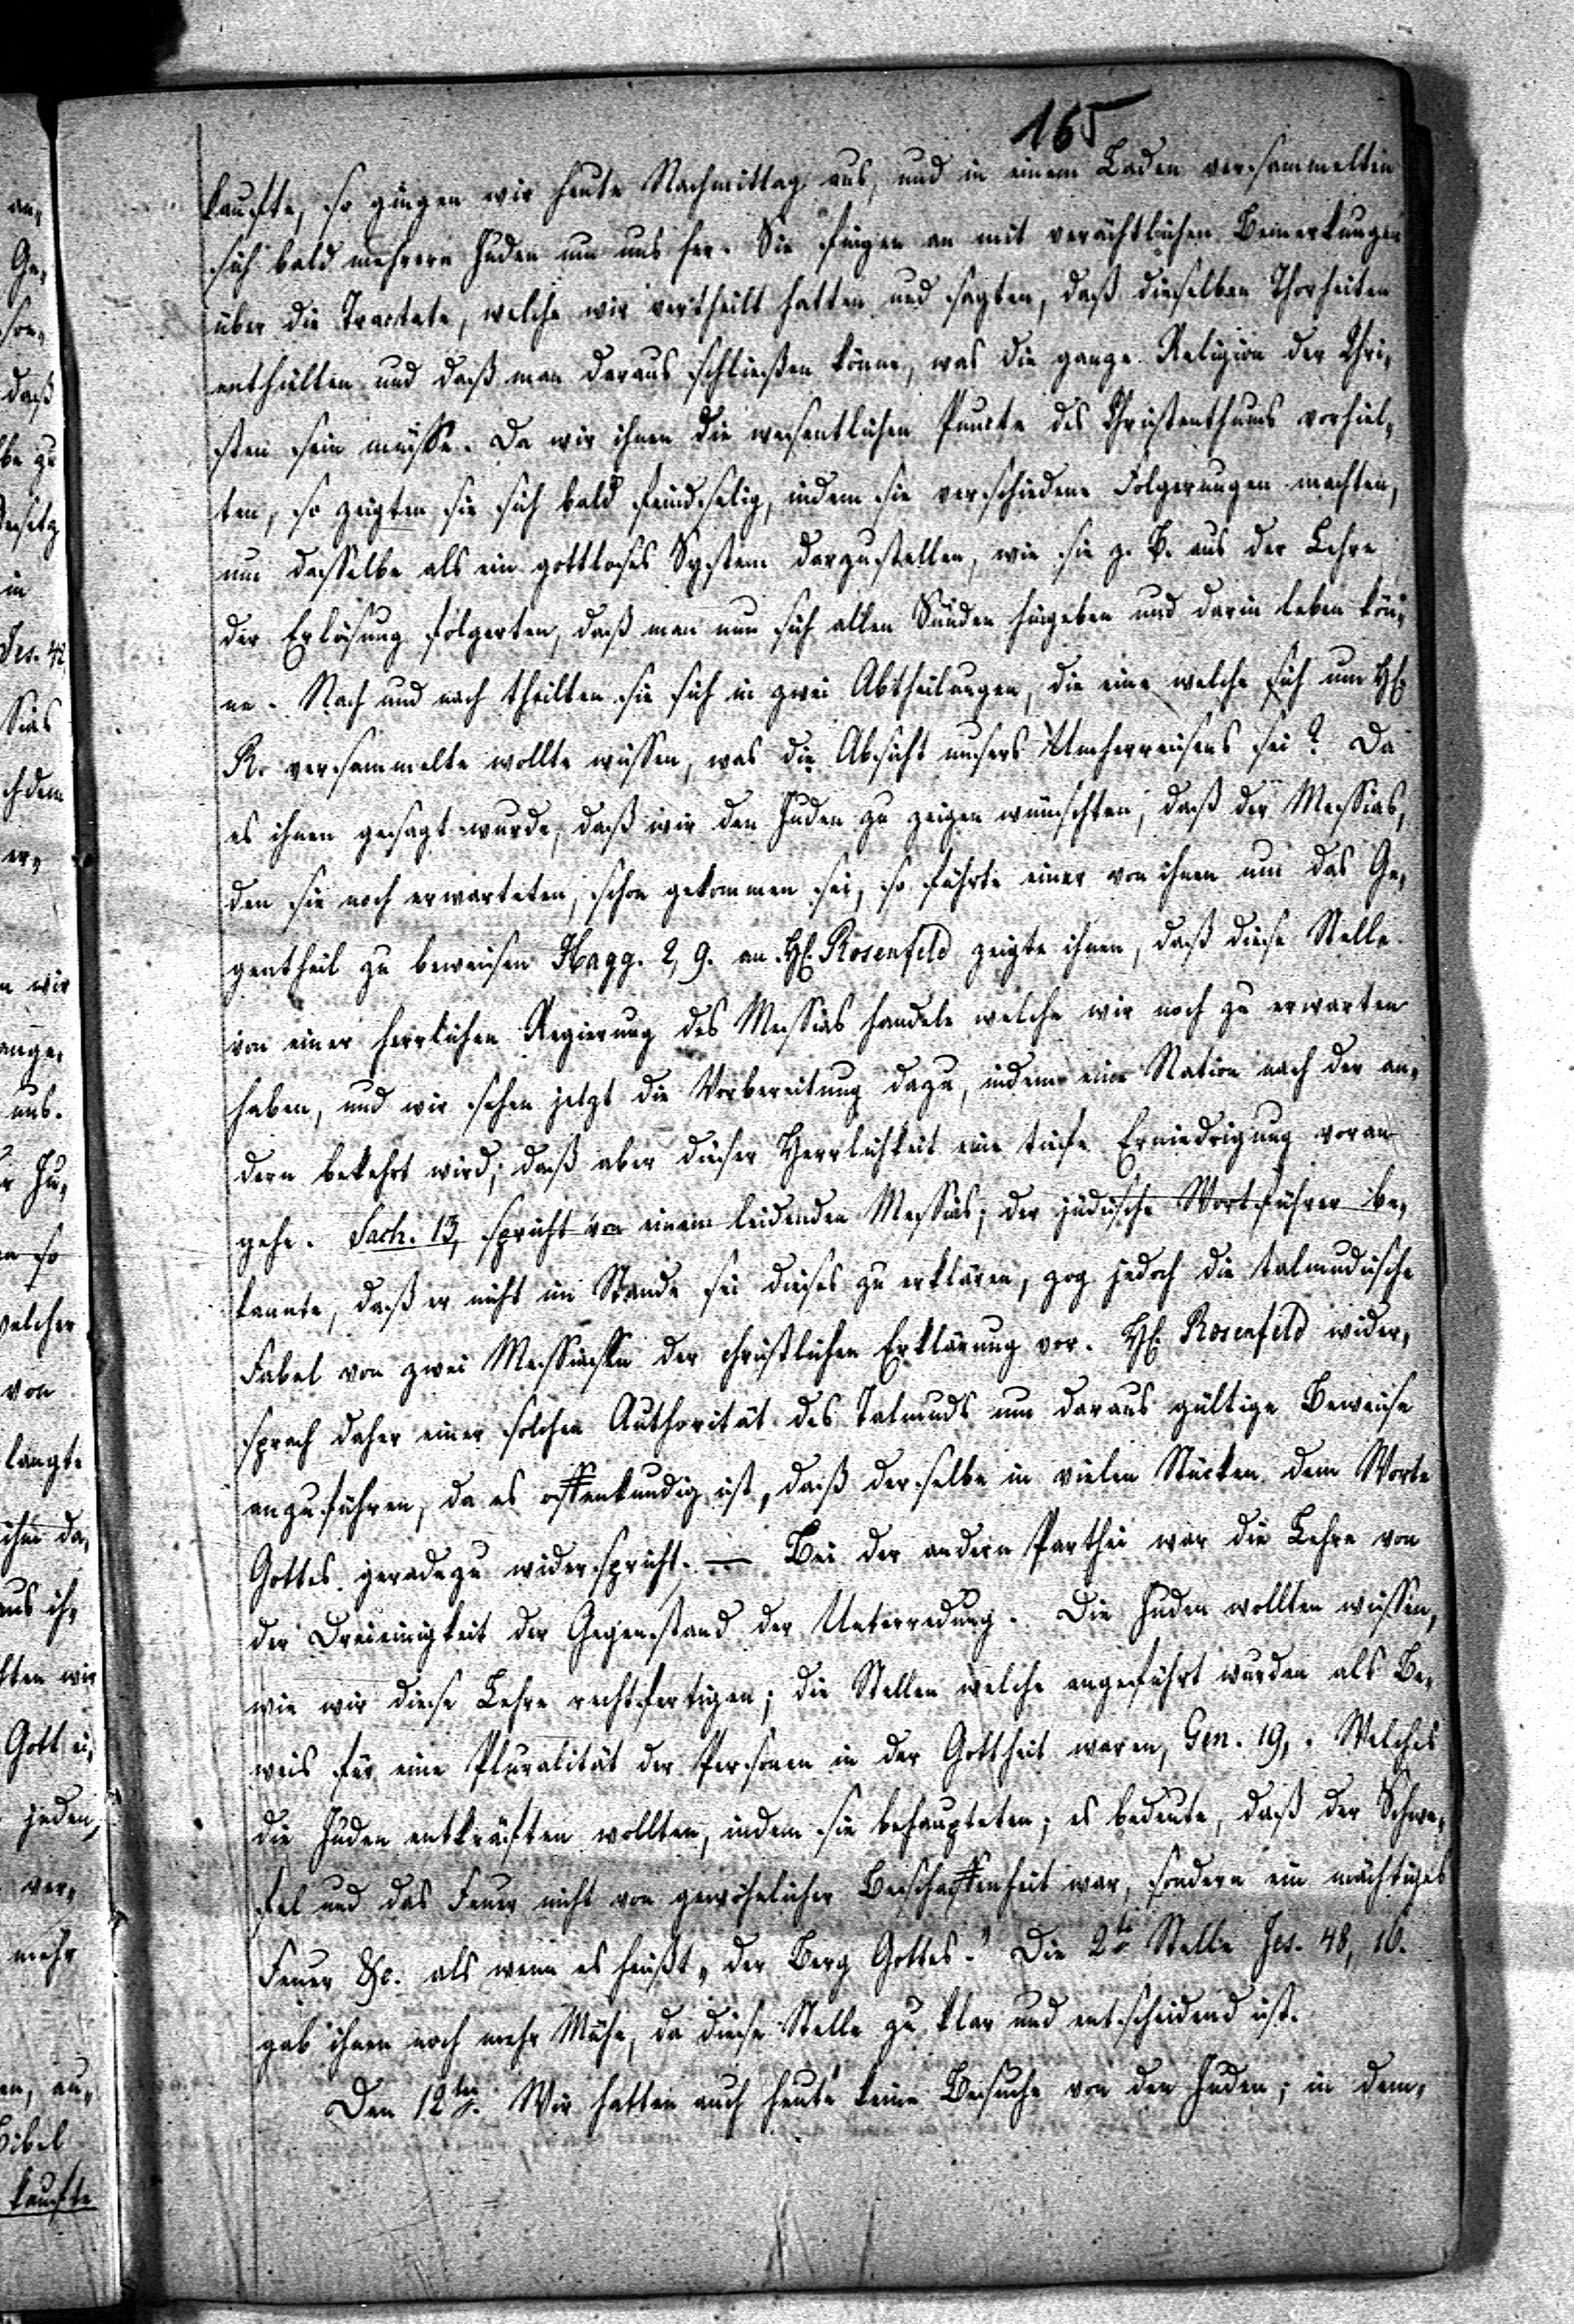 165
kaufte, so gingen wir heute Nachmittag aus, und in einem Laden versammelten
sich bald mehrere Juden um uns her. Sie fingen an mit verächtlichen Bemerkungen
über die Tractate, welche wir vertheilt hatten und sagten, daß dieselben Thorheiten
enthielten und daß man daraus schließen könne, was die ganze Religion der Chri„
sten sein müsse. Da wir ihnen die wesentlichen Puncte des Christenthums vorhiel„
ten, so zeigten sie sich bald feindselig, indem sie verschiedene Folgerungen machten,
um dasselbe als ein gottloses System darzustellen, wie sie z. B. aus der Lehre
der Erlösung folgerten, daß man nun sich allen Sünden hingeben und darin leben kön„
ne. Nach und nach theilten sie sich in zwei Abtheilungen, die eine welche sich um H.
R. versammelte wollte wissen, was die Absicht unsers Umherreisens sei? Da
es ihnen gesagt wurde, daß wir den Juden zu zeigen wünschten, daß der Messias,
den sie noch erwarteten, schon gekommen sei, so führte einer von ihnen um das Ge„
gentheil zu beweisen Hagg. 2, 9. an. H. Rosenfeld zeigte ihnen, daß diese Stelle
von einer herrlichen Regierung des Messias handele welche wir noch zu erwarten
haben, und wir sehen jetzt die Vorbereitung dazu, indem eine Nation nach der an„
dern bekehrt wird; daß aber dieser Herrlichkeit eine tiefe Erniedrigung voran
gehe. Sach. 13, spricht von einem leidenden Messias; der jüdische Wortführer be„
kannte, daß er nicht im Stande sei dieses zu erklären, zog jedoch die talmudische
Fabel von zwei Messiassen der christlichen Erklärung vor. H. Rosenfeld wider„
sprach daher einer solchen Authorität des Talmuds um daraus gültige Beweise
anzuführen, da es offenkundig ist, daß derselbe in vielen Stücken dem Worte
Gottes geradezu widerspricht. — Bei der andern Parthei war die Lehre von
der Dreieinigkeit der Gegenstand der Unterredung. Die Juden wollten wissen,
wie wir diese Lehre rechtfertigen; die Stellen welche angeführt wurden als Be„
weis für eine Pluralität der Personen in der Gottheit waren, Gen. 19, . Welches
die Juden entkräften wollten, indem sie behaupteten; es bedeute, daß der Schwe„
fel und das Feuer nicht von gewöhnlicher Beschaffenheit war, sondern ein mächtiges
Feuer &c. als wenn es heißt „der Berg Gottes.“ Die 2te Stelle Jes. 48, 16.
gab ihnen noch mehr Mühe, da diese Stelle zu klar und entscheidend ist.
Den 12ten. Wir hatten auch heute keine Besuche von den Juden; in dem„